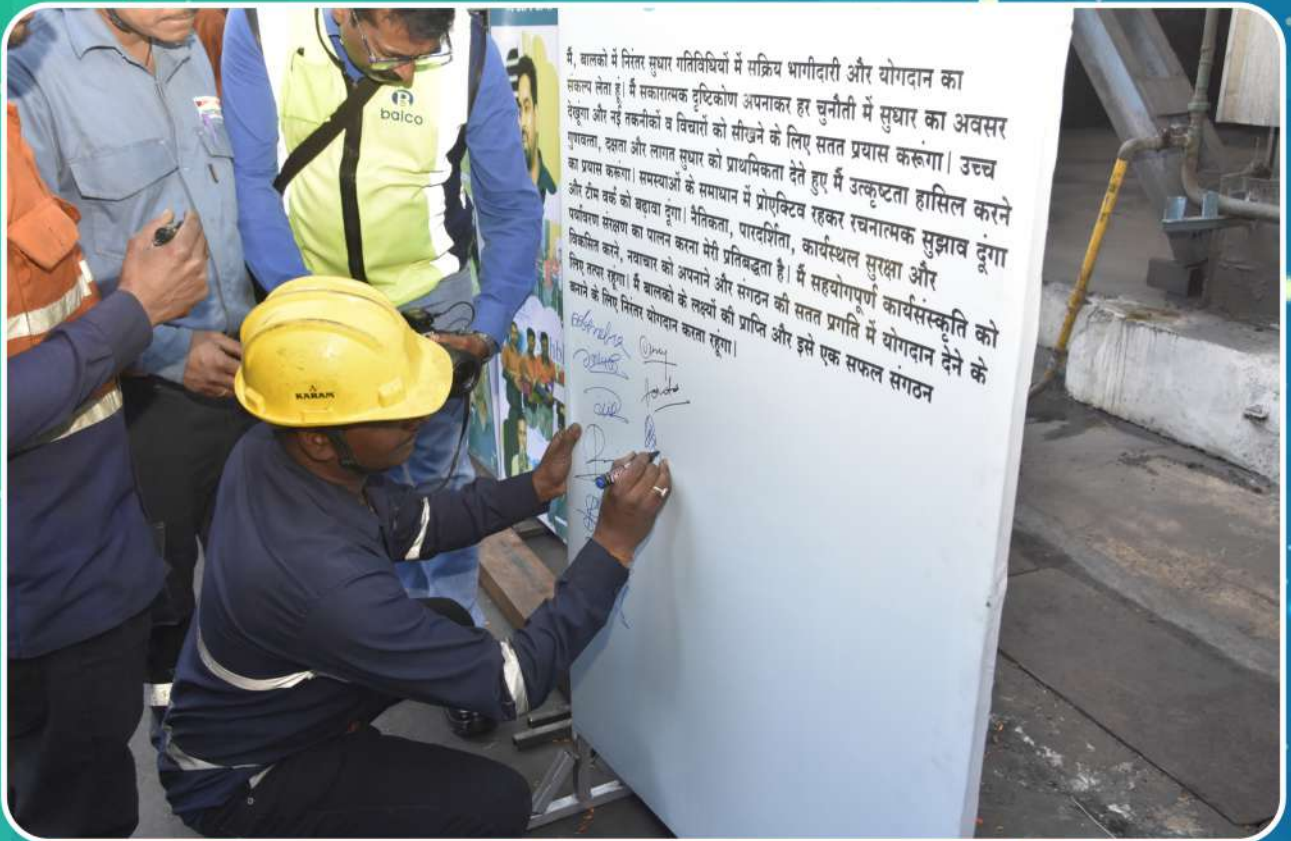 balco
KARAM
मैं, बालको में निरंतर सुधार गतिविधियों में सक्रिय भागीदारी और योगदान का
संकल्प लेता हूं। मैं सकारात्मक दृष्टिकोण अपनाकर हर चुनौती में सुधार का अवसर
देखूंगा और नई तकनीकों व विचारों को सीखने के लिए सतत प्रयास करूंगा। उच्च
गुणवत्ता, दक्षता और लागत सुधार को प्राथमिकता देते हुए मैं उत्कृष्टता हासिल करने
का प्रयास करूंगा। समस्याओं के समाधान में प्रोएक्टिव रहकर रचनात्मक सुझाव दूंगा
और टीम वर्क को बढ़ावा दूंगा। नैतिकता, पारदर्शिता, कार्यस्थल सुरक्षा और
पर्यावरण संरक्षण का पालन करना मेरी प्रतिबद्धता है। मैं सहयोगपूर्ण कार्यसंस्कृति को
विकसित करने, नवाचार को अपनाने और संगठन की सतत प्रगति में योगदान देने के
लिए तत्पर रहूंगा। मैं बालको के लक्ष्यों की प्राप्ति और इसे एक सफल संगठन
बनाने के लिए निरंतर योगदान करता रहूंगा।